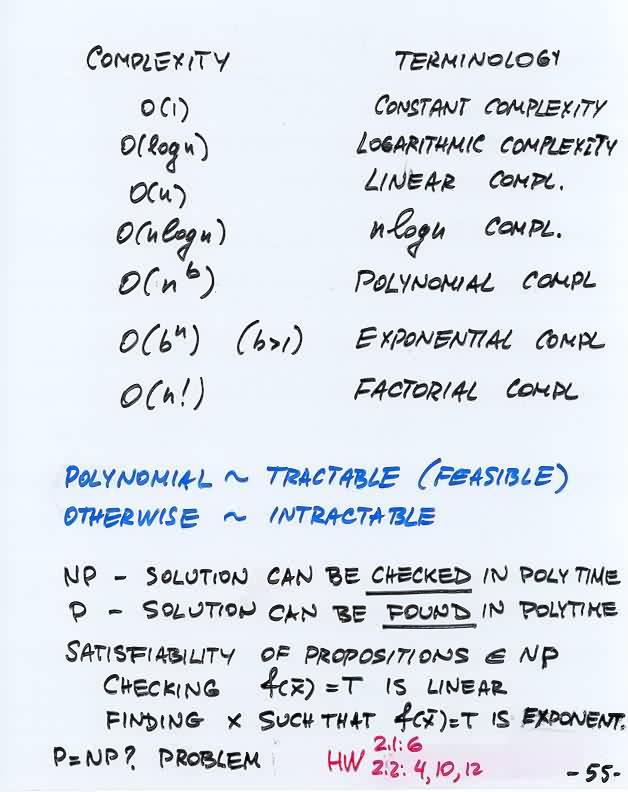 COMPLEXITY TERMINOLOGY
O(1) CONSTANT COMPLEXITY
O(log n) LOGARITHMIC COMPLEXITY
O(n) LINEAR COMPL.
O(n log n) n log n COMPL.
O(n^b) POLYNOMIAL COMPL
O(b^n) (b>1) EXPONENTIAL COMPL
O(n!) FACTORIAL COMPL
POLYNOMIAL ~ TRACTABLE (FEASIBLE)
OTHERWISE ~ INTRACTABLE
NP - SOLUTION CAN BE CHECKED IN POLY TIME
P - SOLUTION CAN BE FOUND IN POLYTIME
SATISFIABILITY OF PROPOSITIONS ∈ NP
CHECKING f(x̄)=T IS LINEAR
FINDING x SUCH THAT f(x̄)=T IS EXPONENT.
P=NP? PROBLEM HW 2.1: 6
2.2: 4, 10, 12
-55-